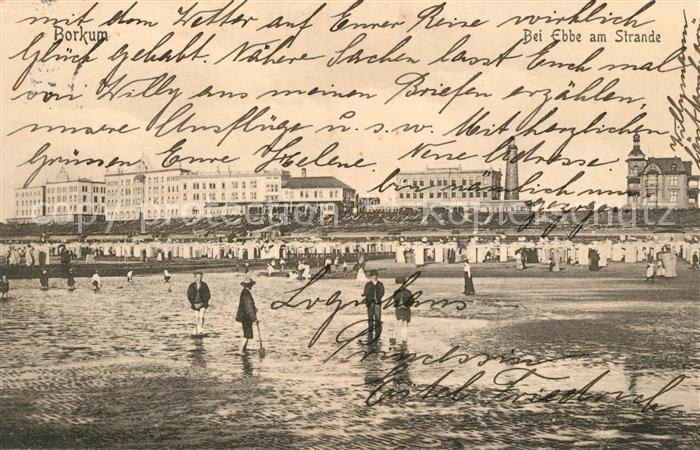 Borkum
Bei Ebbe am Strande
mit dem Wetter auf Eurer Reise wirklich
Glück gehabt. Nähere Sachen lasst Euch mal
von Willy aus meinen Briefen erzählen,
unsere Ausflüge u. s. w. Mit herzlichen
Grüssen Eure Helene. Neue Adresse
bin nämlich um
gezogen
Logierhaus
Princessin
Eitel Friedrich